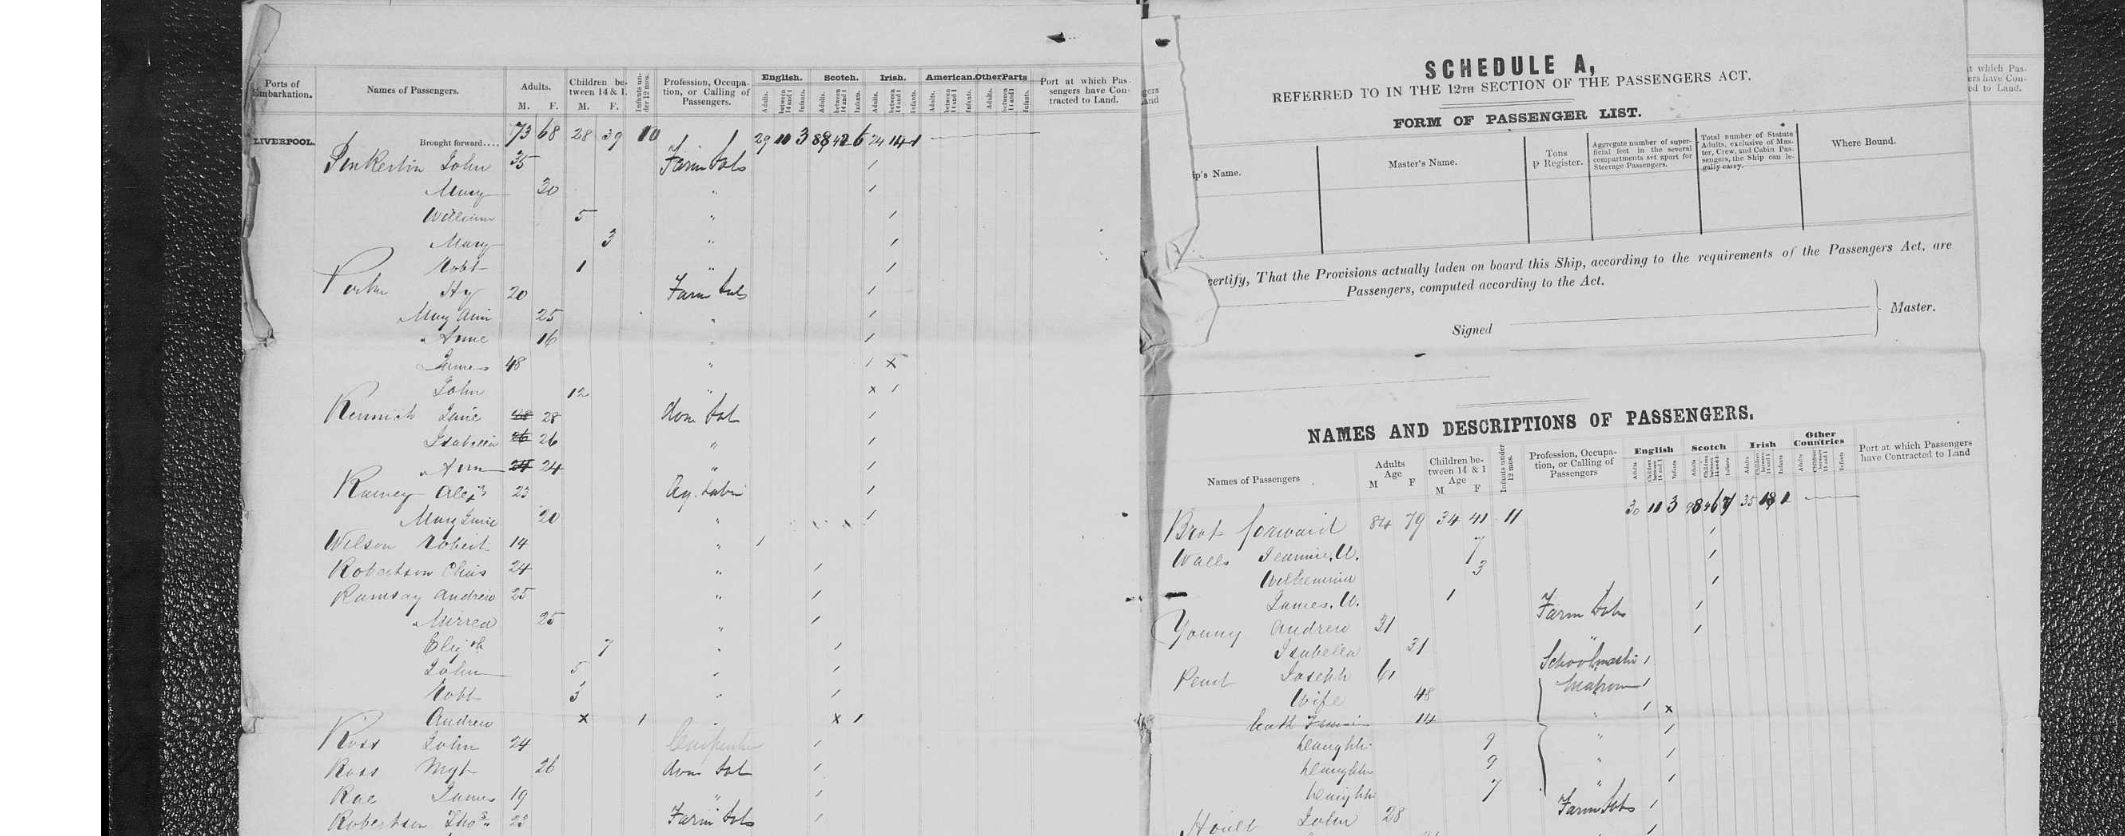 Ports of Embarkation.
Names of Passengers.
Adults.
M. F.
Children between 14 & 1.
M. F.
Infants under 12 mos.
Profession, Occupation, or Calling of Passengers.
English. Scotch. Irish. American. Other Parts
Adults. between 14 and 1 Infants.
Port at which Passengers have Contracted to Land.
LIVERPOOL. Brought forward.... 73 68 28 39 10 29 3 6 24
John 35 Farm Labs
Mary 30 "
William 5 "
Mary 3 "
Robt 1 "
Hy 20 Farm Labs
Mary Ann 25 "
Anne 16 "
James 48 "
John 12 x
Jane 28 dom
Isabella 26 "
Ann 24 "
Ramsey Alexr 23 Ag. Labr
Mary Jane 20 "
Wilson Robert 14 "
Robertson Chas 24 "
Ramsay Andrew 25 "
Mirren 25 "
Elizth 7 "
John 5 "
Robt 3 "
Andrew x 1 x
Ross John 24 Carpenter
Ross Mgt 26 dom
Rae James 19 "
Robertson Thos 23 Farm Labs
SCHEDULE A,
REFERRED TO IN THE 12TH SECTION OF THE PASSENGERS ACT.
FORM OF PASSENGER LIST.
ip's Name.
Master's Name.
Tons p Register.
Aggregate number of superficial feet in the several compartments set apart for Steerage Passengers.
Total number of Statute Adults, exclusive of Master, Crew, and Cabin Passengers, the Ship can legally carry.
Where Bound.
certify, That the Provisions actually laden on board this Ship, according to the requirements of the Passengers Act, are
Passengers, computed according to the Act.
Signed
Master.
NAMES AND DESCRIPTIONS OF PASSENGERS.
Names of Passengers
Adults Age
M F
Children between 14 & 1 Age
M F
Infants under 12 mos.
Profession, Occupation, or Calling of Passengers
English Scotch Irish Other Countries
Adults Children between 14 and 1 Infants
Port at which Passengers have Contracted to Land
Brot forward 84 79 34 41 11 30 11 3 35
Walls Jeannie. W. 7
Wilhemina 3
James. W. 1
Young Andrew 31 Farm Labs
Isabella 31 "
Joseph 61 Schoolmaster
Wife 48 Matron
14 " x
Daughtr 9 "
Daughtr 9 "
Daughtr 7 "
John 28 Farm Labs